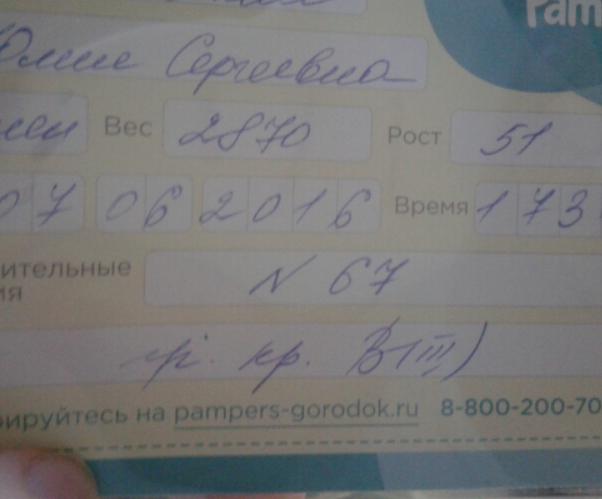 Pam
Юлие Сергеевна
Вес 2870 Рост 51
07 06 2016 Время 173
ительные
ия
N 67
гр. кр. B(III)
рируйтесь на pampers-gorodok.ru 8-800-200-70